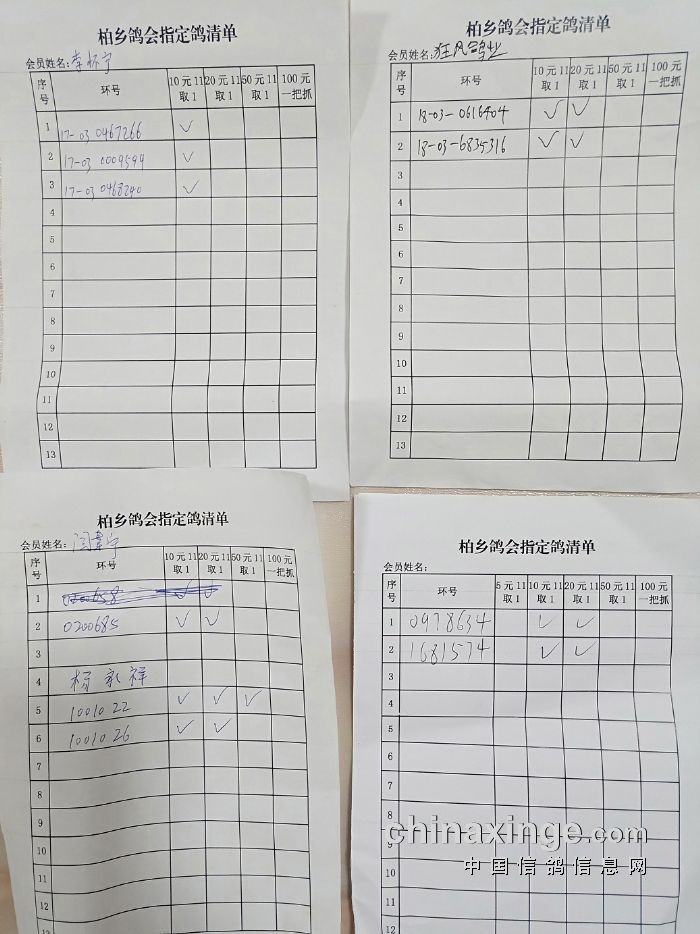 柏乡鸽会指定鸽清单
会员姓名：李怀宁
序号 环号 10元11取1 20元11取1 50元11取1 100元一把抓
1 17-03 0467266 ✓
2 17-03 0009599 ✓
3 17-03 0468240 ✓
4
5
6
7
8
9
10
11
12
13
柏乡鸽会指定鸽清单
会员姓名：狂风鸽业
序号 环号 10元11取1 20元11取1 50元11取1 100元一把抓
1 18-03-0616404 ✓ ✓
2 18-03-6835316 ✓ ✓
3
4
5
6
7
8
9
10
11
12
13
柏乡鸽会指定鸽清单
会员姓名：闫 宁
序号 环号 10元11取1 20元11取1 50元11取1 100元一把抓
1 0200658 ✓ ✓
2 0200685 ✓ ✓
3
4 杨永祥
5 1001022 ✓ ✓ ✓
6 1001026 ✓ ✓
7
8
9
10
11
12
柏乡鸽会指定鸽清单
会员姓名：
序号 环号 5元11取1 10元11取1 20元11取1 50元11取1 100元一把抓
1 0978634 ✓ ✓
2 1681574 ✓ ✓
3
4
5
6
7
8
9
10
11
12
chinaxinge.com
中国信鸽信息网